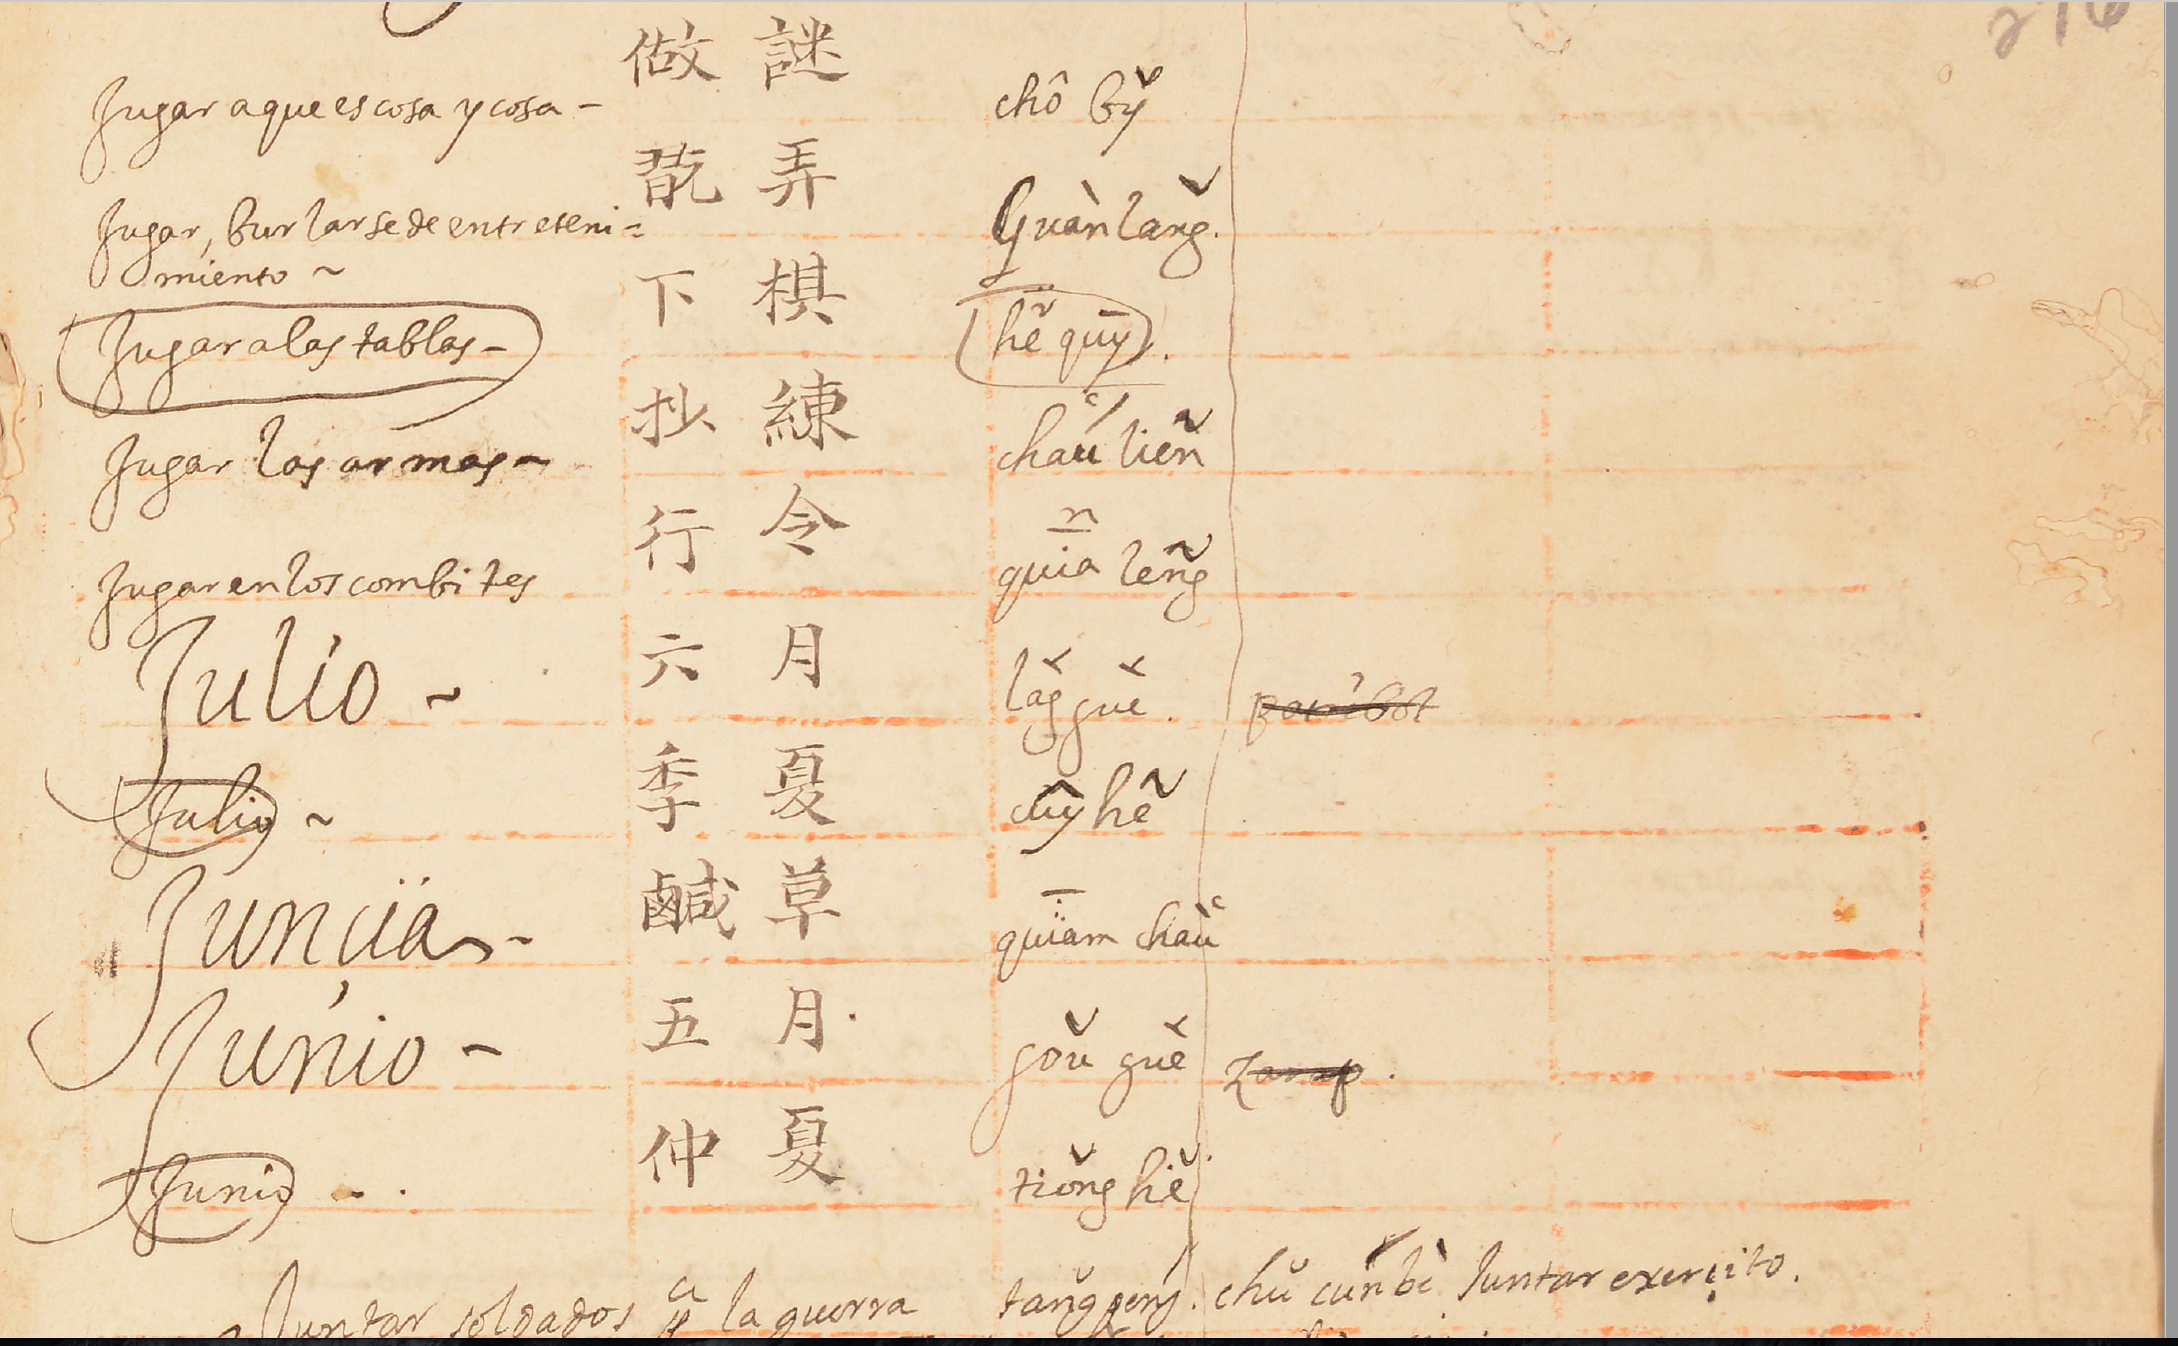 216
Jugar a que es cosa y cosa - 做 謎 chô bỹ
Jugar, burlarse de entreteni= 翫 弄 Guàn lang̃.
miento ~
Jugar a las tablas - 下 棋 hẽ quȳ.
Jugar las armas - 抄 練 chaú lieñ
Jugar en los combites 行 令 quia leng̃
Julio ~ 六 月 la̍g guè.
Julio ~ 季 夏 cuỹ hẽ
Junçia - 鹹 草 quiam chaù
Junio - 五 月 goǔ guè
Junio - . 仲 夏 tiǒng hě
Juntar soldados a la guerra tang̃ peng. chǔ cuń bè Juntar exerçito.